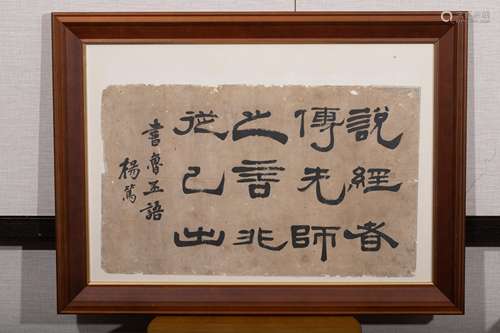 說經者
傳先師
之言非
從己出
書魯丕語
楊篤